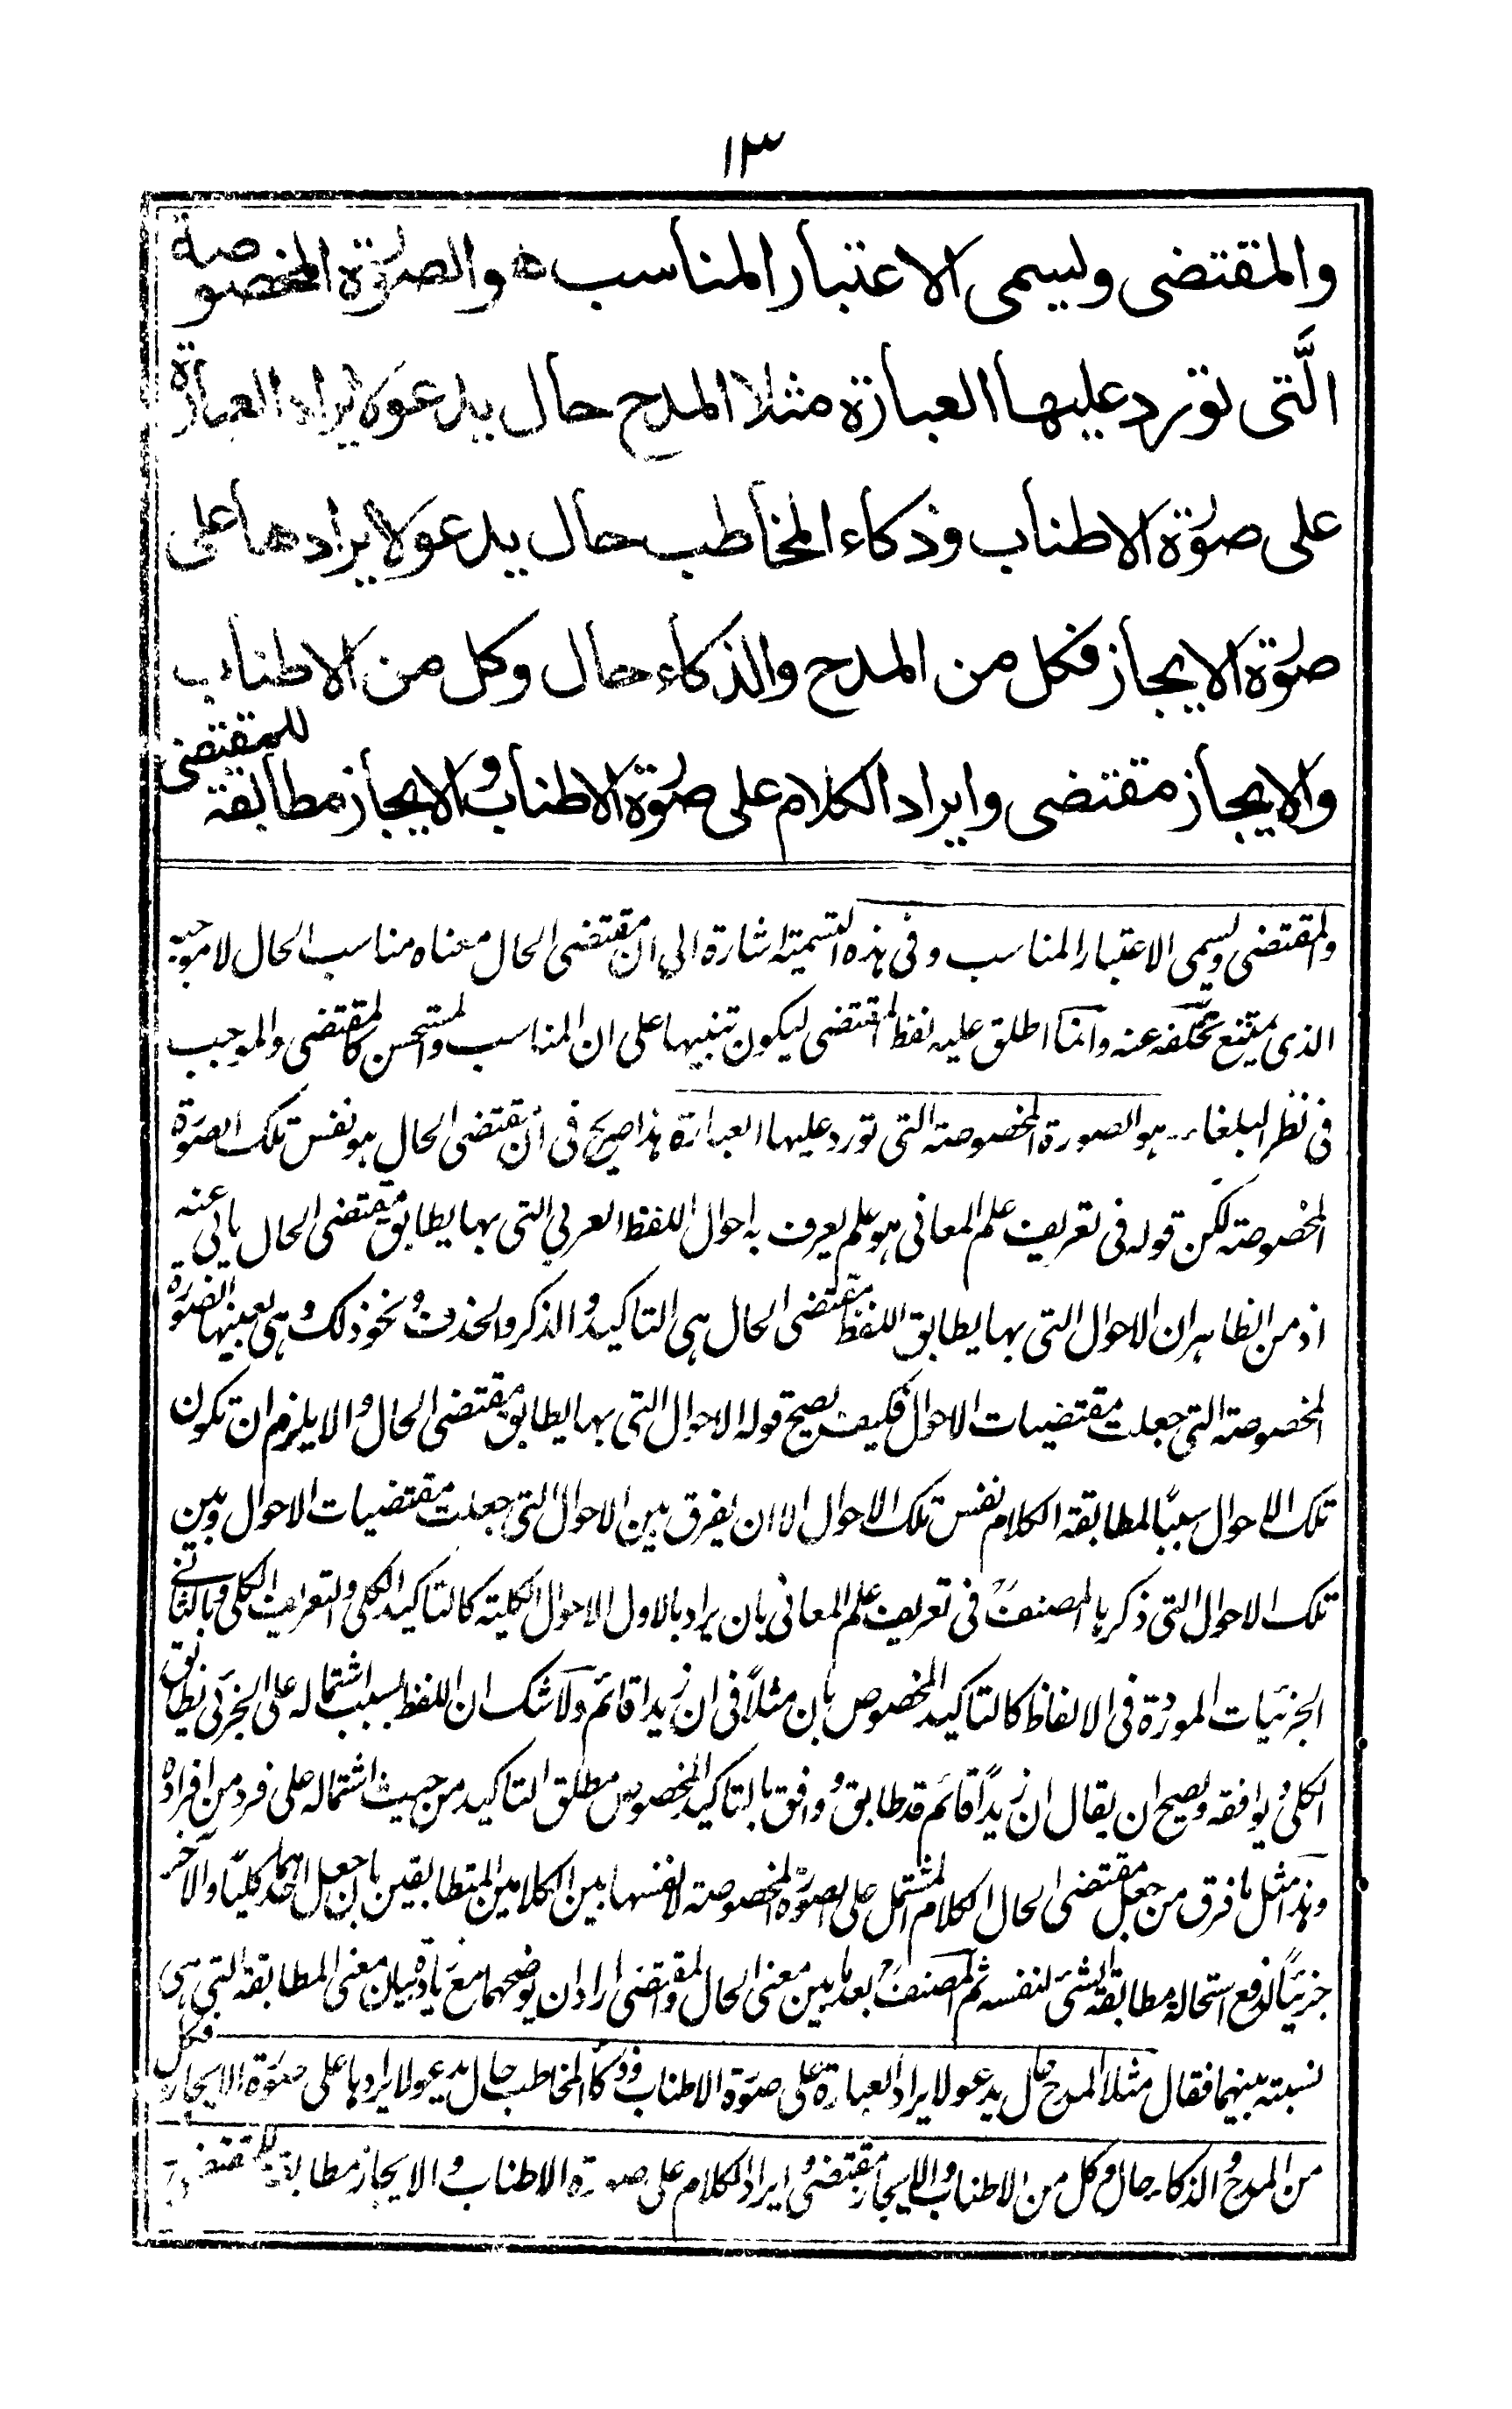 ١٣
والمقتضى ويسمى الاعتبار المناسب هو الصورة المخصوصة
الَّتى تورد عليها العبارة مثلا المدح حال يدعو لايراد العبارة
على صورة الاطناب وذكاء المخاطب حال يدعو لايرادها على
صورة الايجاز فكل من المدح والذكاء حال وكل من الاطناب
والايجاز مقتضى وايراد الكلام على صورة الاطناب والايجاز مطابقة للمقتضى
والمقتضى ويسمى الاعتبار المناسب وفى هذه التسمية اشارة الى ان مقتضى الحال معناه مناسب الحال لا موجبه
الذى يمتنع تخلفه عنه وانما اطلق عليه لفظ المقتضى ليكون تنبيها على ان المناسب والمستحسن كالمقتضى والموجب
فى نظر البلغاء هو الصورة المخصوصة التى تورد عليها العبارة هذا صريح فى ان مقتضى الحال هو نفس تلك الصورة
المخصوصة لكن قوله فى تعريف علم المعانى هو علم يعرف به احوال اللفظ العربي التى بها يطابق مقتضى الحال يابى عنه
اذ من الظاهر ان الاحوال التى بها يطابق اللفظ مقتضى الحال هى التاكيد والذكر والحذف ونحو ذلك وهى بعينها الصورة
المخصوصة التى جعلت مقتضيات الاحوال فكيف يصح قوله الاحوال التى بها يطابق مقتضى الحال والا يلزم ان تكون
تلك الاحوال سببًا لمطابقة الكلام نفس تلك الاحوال الا ان يفرق بين الاحوال التى جعلت مقتضيات الاحوال وبين
تلك الاحوال التى ذكرها المصنف فى تعريف علم المعانى بان يراد بالاول الاحوال الكلية كالتاكيد الكلى والتعريف الكلى وبالثانى
الجزئيات الموردة فى الالفاظ كالتاكيد المخصوص بان مثلاً فى ان زيدا قائم ولا شك ان اللفظ بسبب اشتماله على الجزئى يطابق
الكلى ويوافقه ويصح ان يقال ان زيداً قائم قد طابق ووافق بالتاكيد المخصوص مطلق التاكيد من حيث اشتماله على فرد من افراده
وهذا مثل ما فرق من جعل مقتضى الحال الكلام المشتمل على الصورة المخصوصة لا نفسها بين الكلامين المتطابقين بان جعل احدهما كليًا والآخر
جزئيًا لدفع استحالة مطابقة الشئ لنفسه ثم المصنف بعد ما بين معنى الحال والمقتضى اراد ان يوضحهما مع زيادة بيان معنى المطابقة التى هى
نسبته بينهما فقال مثلا المدح حال يدعو لايراد العبارة على صورة الاطناب وذكاء المخاطب حال يدعو لايرادها على صورة الايجاز فكل
من المدح والذكاء حال وكل من الاطناب والايجاز مقتضى وايراد الكلام على صورة الاطناب والايجاز مطابقة للمقتضى